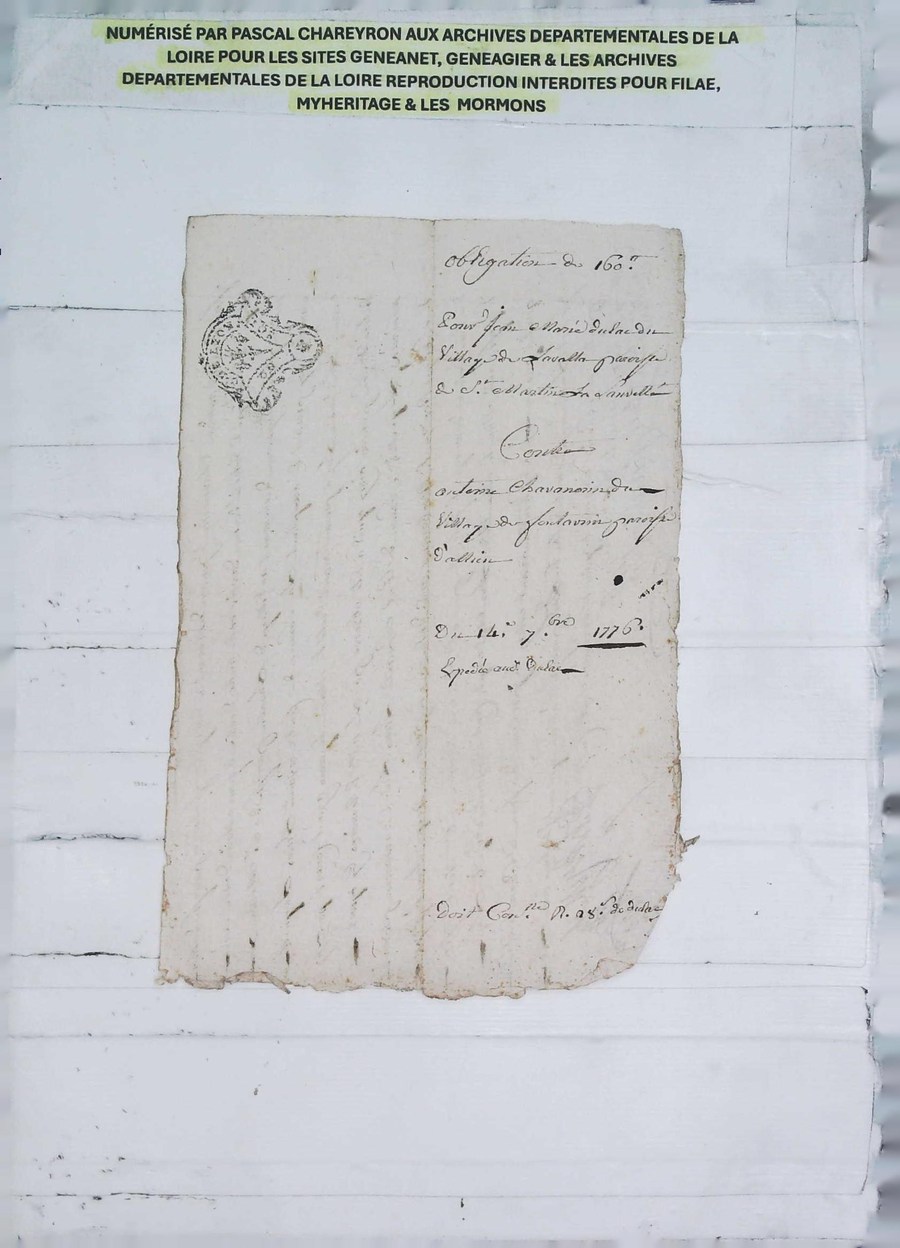 NUMÉRISÉ PAR PASCAL CHAREYRON AUX ARCHIVES DEPARTEMENTALES DE LA
LOIRE POUR LES SITES GENEANET, GENEAGIER & LES ARCHIVES
DEPARTEMENTALES DE LA LOIRE REPRODUCTION INTERDITES POUR FILAE,
MYHERITAGE & LES MORMONS
obligation de 160.tt
Pour Jean Marie dulac du
Village de Lavalla paroisse
de St. Martin La Sauveté
Contre
antoine Chavanerin du
Village de paroisse
d'allieu
Du 14. 7.bre 1776.
Expédiée aud. Dulac
doit Con.